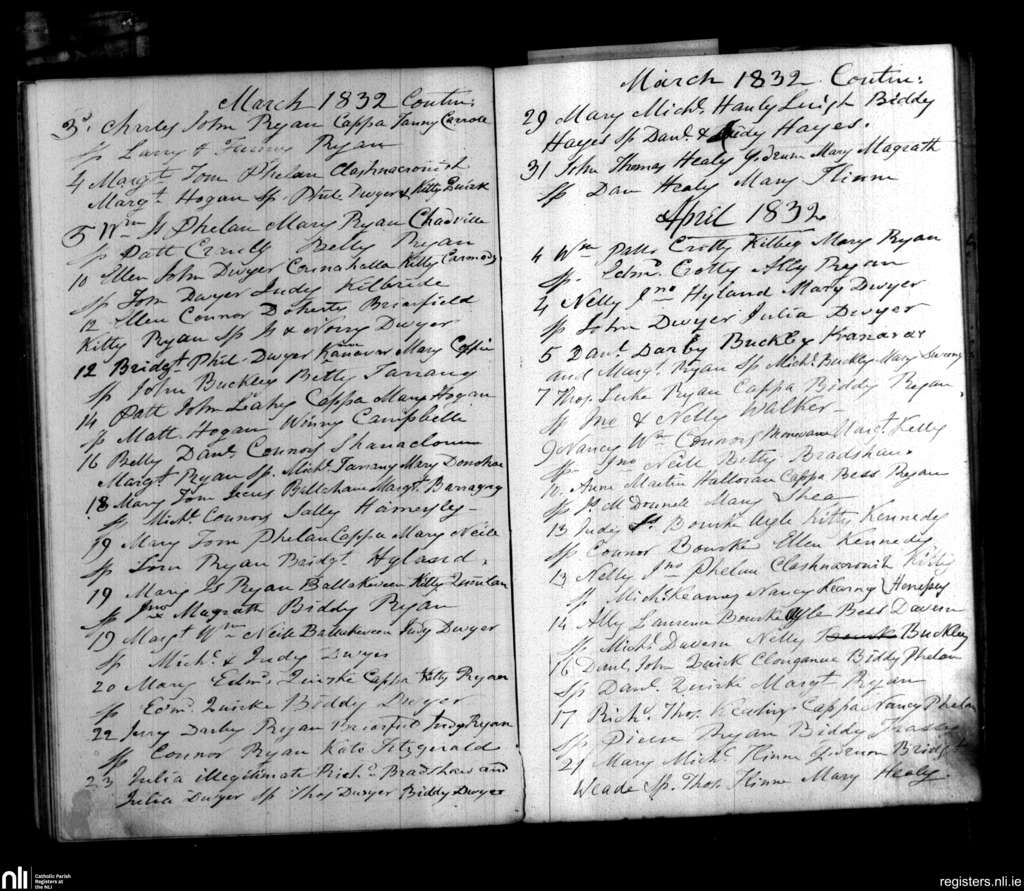 March 1832 Contin:
3d. Charly John Ryan Cappa Fanny Carroll
Sp Larry & Ryan
4 Margt Tom Phelan Clashnacronish
Margt. Hogan Sp. Phil. Dwyer & Kitty Quirk
5 Wm Js Phelan Mary Ryan Chadville
Sp Patt Betty Ryan
10 Ellen John Dwyer Kitty Carmody
Sp Tom Dwyer Judy Kilbride
12 Ellen Connor Doherty Briarfield
Kitty Ryan Sp Js & Norry Dwyer
12 Bridgt. Phil. Dwyer Kranavar Mary Coffie
Sp John Buckley Betty Tarrang
14 Patt John Leahy Cappa Mary Hogan
Sp Matt. Hogan Winny Campbell
16 Betty Danl. Connors Shanacloon
Margt Ryan Sp. Michl. Tarrang Mary Donohue
18 Mary Tom Margt. Barragry
Sp Michl. Connors Sally Hamersly
19 Mary Tom Phelan Cappa Mary Neile
Sp Tom Ryan Bridgt. Hyland.
19 Mary Js Ryan Ballakeven Kitty Quinlan
Sp Jno Magrath Biddy Ryan
19 Margt Wm Neile Ballakeven Judy Dwyer
Sp Michl. & Judy Dwyer
20 Mary Edmd. Quirke Cappa Kitty Ryan
Sp Edmd. Quirke Biddy Dwyer
22 Jerry Darby Ryan Judy Ryan
Sp Connor Ryan Kate Fitzgerald
23 Julia illegitimate Richd. Bradshaw and
Julia Dwyer Sp Thos Dwyer Biddy Dwyer
March 1832 Contin:
29 Mary Michl. Hauly Leigh Biddy
Hayes Sp Danl. & Judy Hayes.
31 John Thomas Healy Mary Magrath
Sp Dan Healy Mary Flinne
April 1832
4 Wm Patt Crotty Kilbeg Mary Ryan
Sp. Edmd. Crotty Ally Ryan
4 Nelly Jno Hyland Mary Dwyer
Sp John Dwyer Julia Dwyer
5 Danl. Darby Buckley Kranavar
and Margt. Ryan Sp Michl. Buckley Mary
7 Thos. Luke Ryan Cappa Biddy Ryan
Sp Jno & Nelly Walker
9 Nancy Wm Connors Margt. Kelly
Sp Jno Neile Betty Bradshaw.
10. Anne Martin Halloran Cappa Bess Ryan
Sp Js McDonnell Mary Shea
13 Judy Js. Bourke Ayle Kitty Kennedy
Sp Connor Bourke Ellen Kennedy
13 Nelly Jno Phelan Clashnacronish Kitty
Sp Michl. Kearney Nancy Kearny Henessy
14 Ally Laurence Bourke Ayle Bess Davern
Sp Michl. Davern Nelly Bourke Buckley
16 Danl. John Quirk Clonganue Biddy Phelan
Sp Danl. Quirke Margt Ryan
17 Richd. Thos. Keating Cappa Nancy Phelan
Sp Pierse Ryan Biddy
21 Mary Michl. Flinne Bridgt
Weade Sp. Thos. Flinne Mary Healy
nli Catholic Parish
Registers at
the NLI
registers.nli.ie